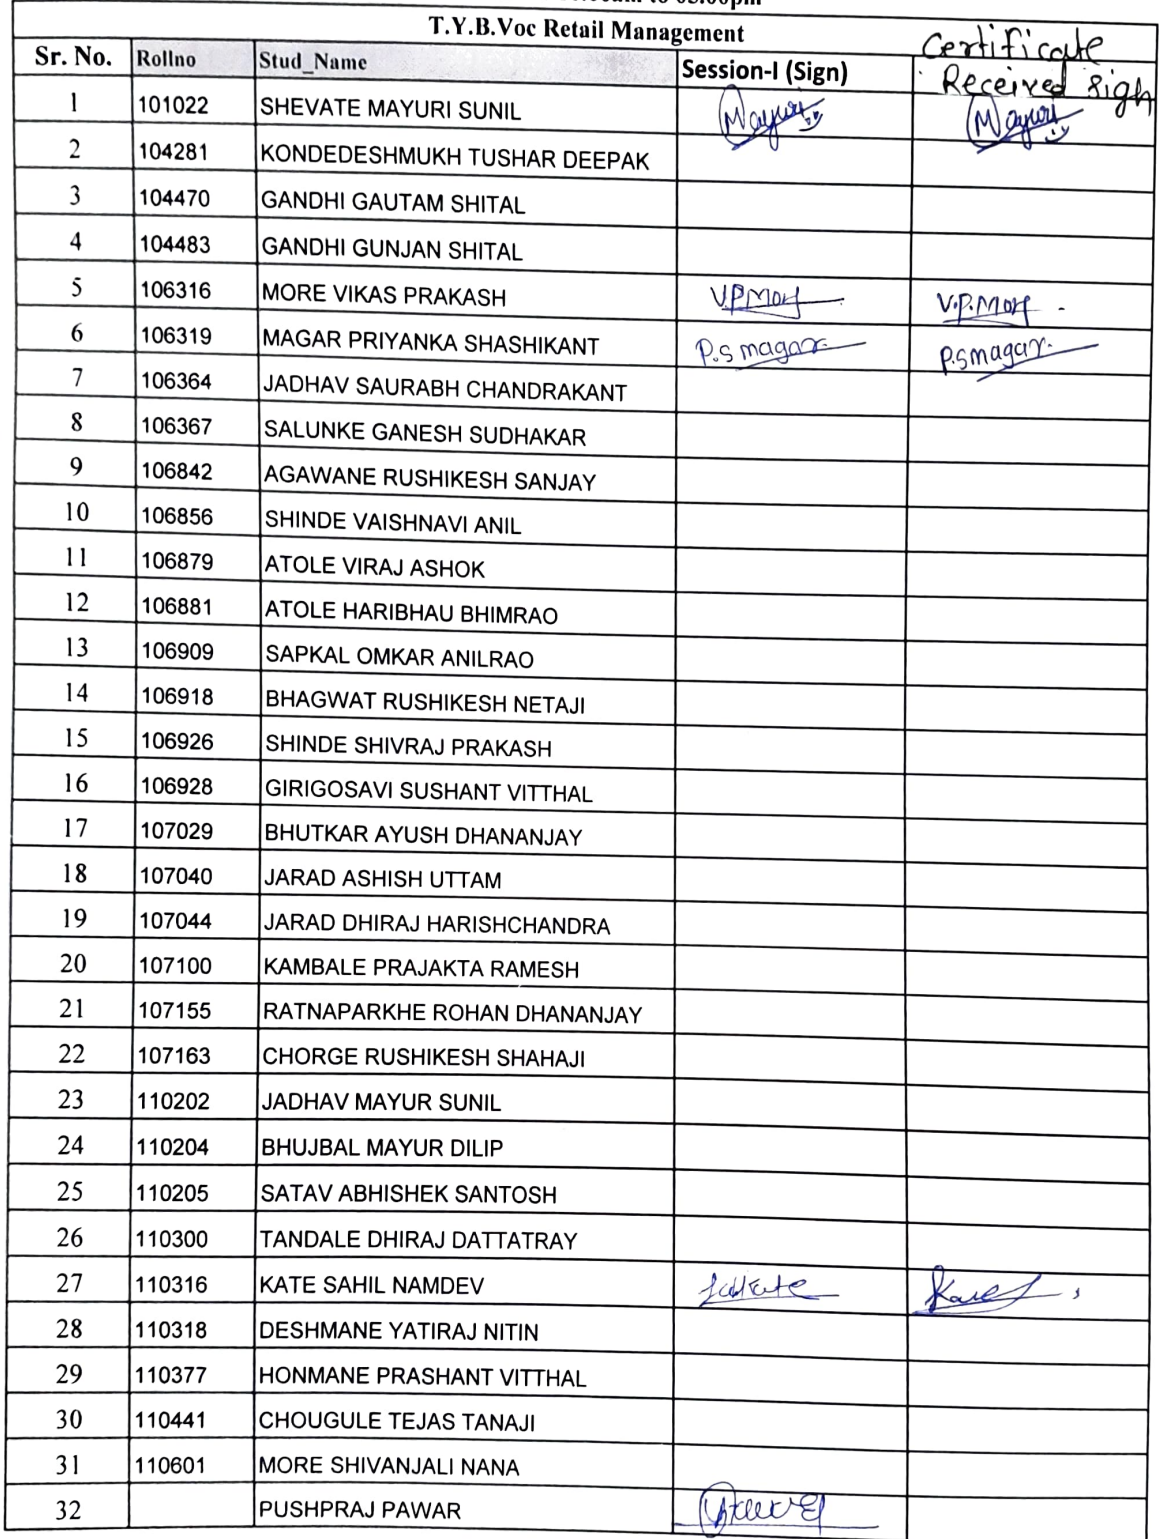 to 05:00pm
T.Y.B.Voc Retail Management
Sr. No. Rollno Stud_Name Session-I (Sign) Certificate Received Sign
1 101022 SHEVATE MAYURI SUNIL Mayuri Mayuri
2 104281 KONDEDESHMUKH TUSHAR DEEPAK
3 104470 GANDHI GAUTAM SHITAL
4 104483 GANDHI GUNJAN SHITAL
5 106316 MORE VIKAS PRAKASH V.P.More V.P.More
6 106319 MAGAR PRIYANKA SHASHIKANT P.s magar P.smagar
7 106364 JADHAV SAURABH CHANDRAKANT
8 106367 SALUNKE GANESH SUDHAKAR
9 106842 AGAWANE RUSHIKESH SANJAY
10 106856 SHINDE VAISHNAVI ANIL
11 106879 ATOLE VIRAJ ASHOK
12 106881 ATOLE HARIBHAU BHIMRAO
13 106909 SAPKAL OMKAR ANILRAO
14 106918 BHAGWAT RUSHIKESH NETAJI
15 106926 SHINDE SHIVRAJ PRAKASH
16 106928 GIRIGOSAVI SUSHANT VITTHAL
17 107029 BHUTKAR AYUSH DHANANJAY
18 107040 JARAD ASHISH UTTAM
19 107044 JARAD DHIRAJ HARISHCHANDRA
20 107100 KAMBALE PRAJAKTA RAMESH
21 107155 RATNAPARKHE ROHAN DHANANJAY
22 107163 CHORGE RUSHIKESH SHAHAJI
23 110202 JADHAV MAYUR SUNIL
24 110204 BHUJBAL MAYUR DILIP
25 110205 SATAV ABHISHEK SANTOSH
26 110300 TANDALE DHIRAJ DATTATRAY
27 110316 KATE SAHIL NAMDEV
28 110318 DESHMANE YATIRAJ NITIN
29 110377 HONMANE PRASHANT VITTHAL
30 110441 CHOUGULE TEJAS TANAJI
31 110601 MORE SHIVANJALI NANA
32 PUSHPRAJ PAWAR